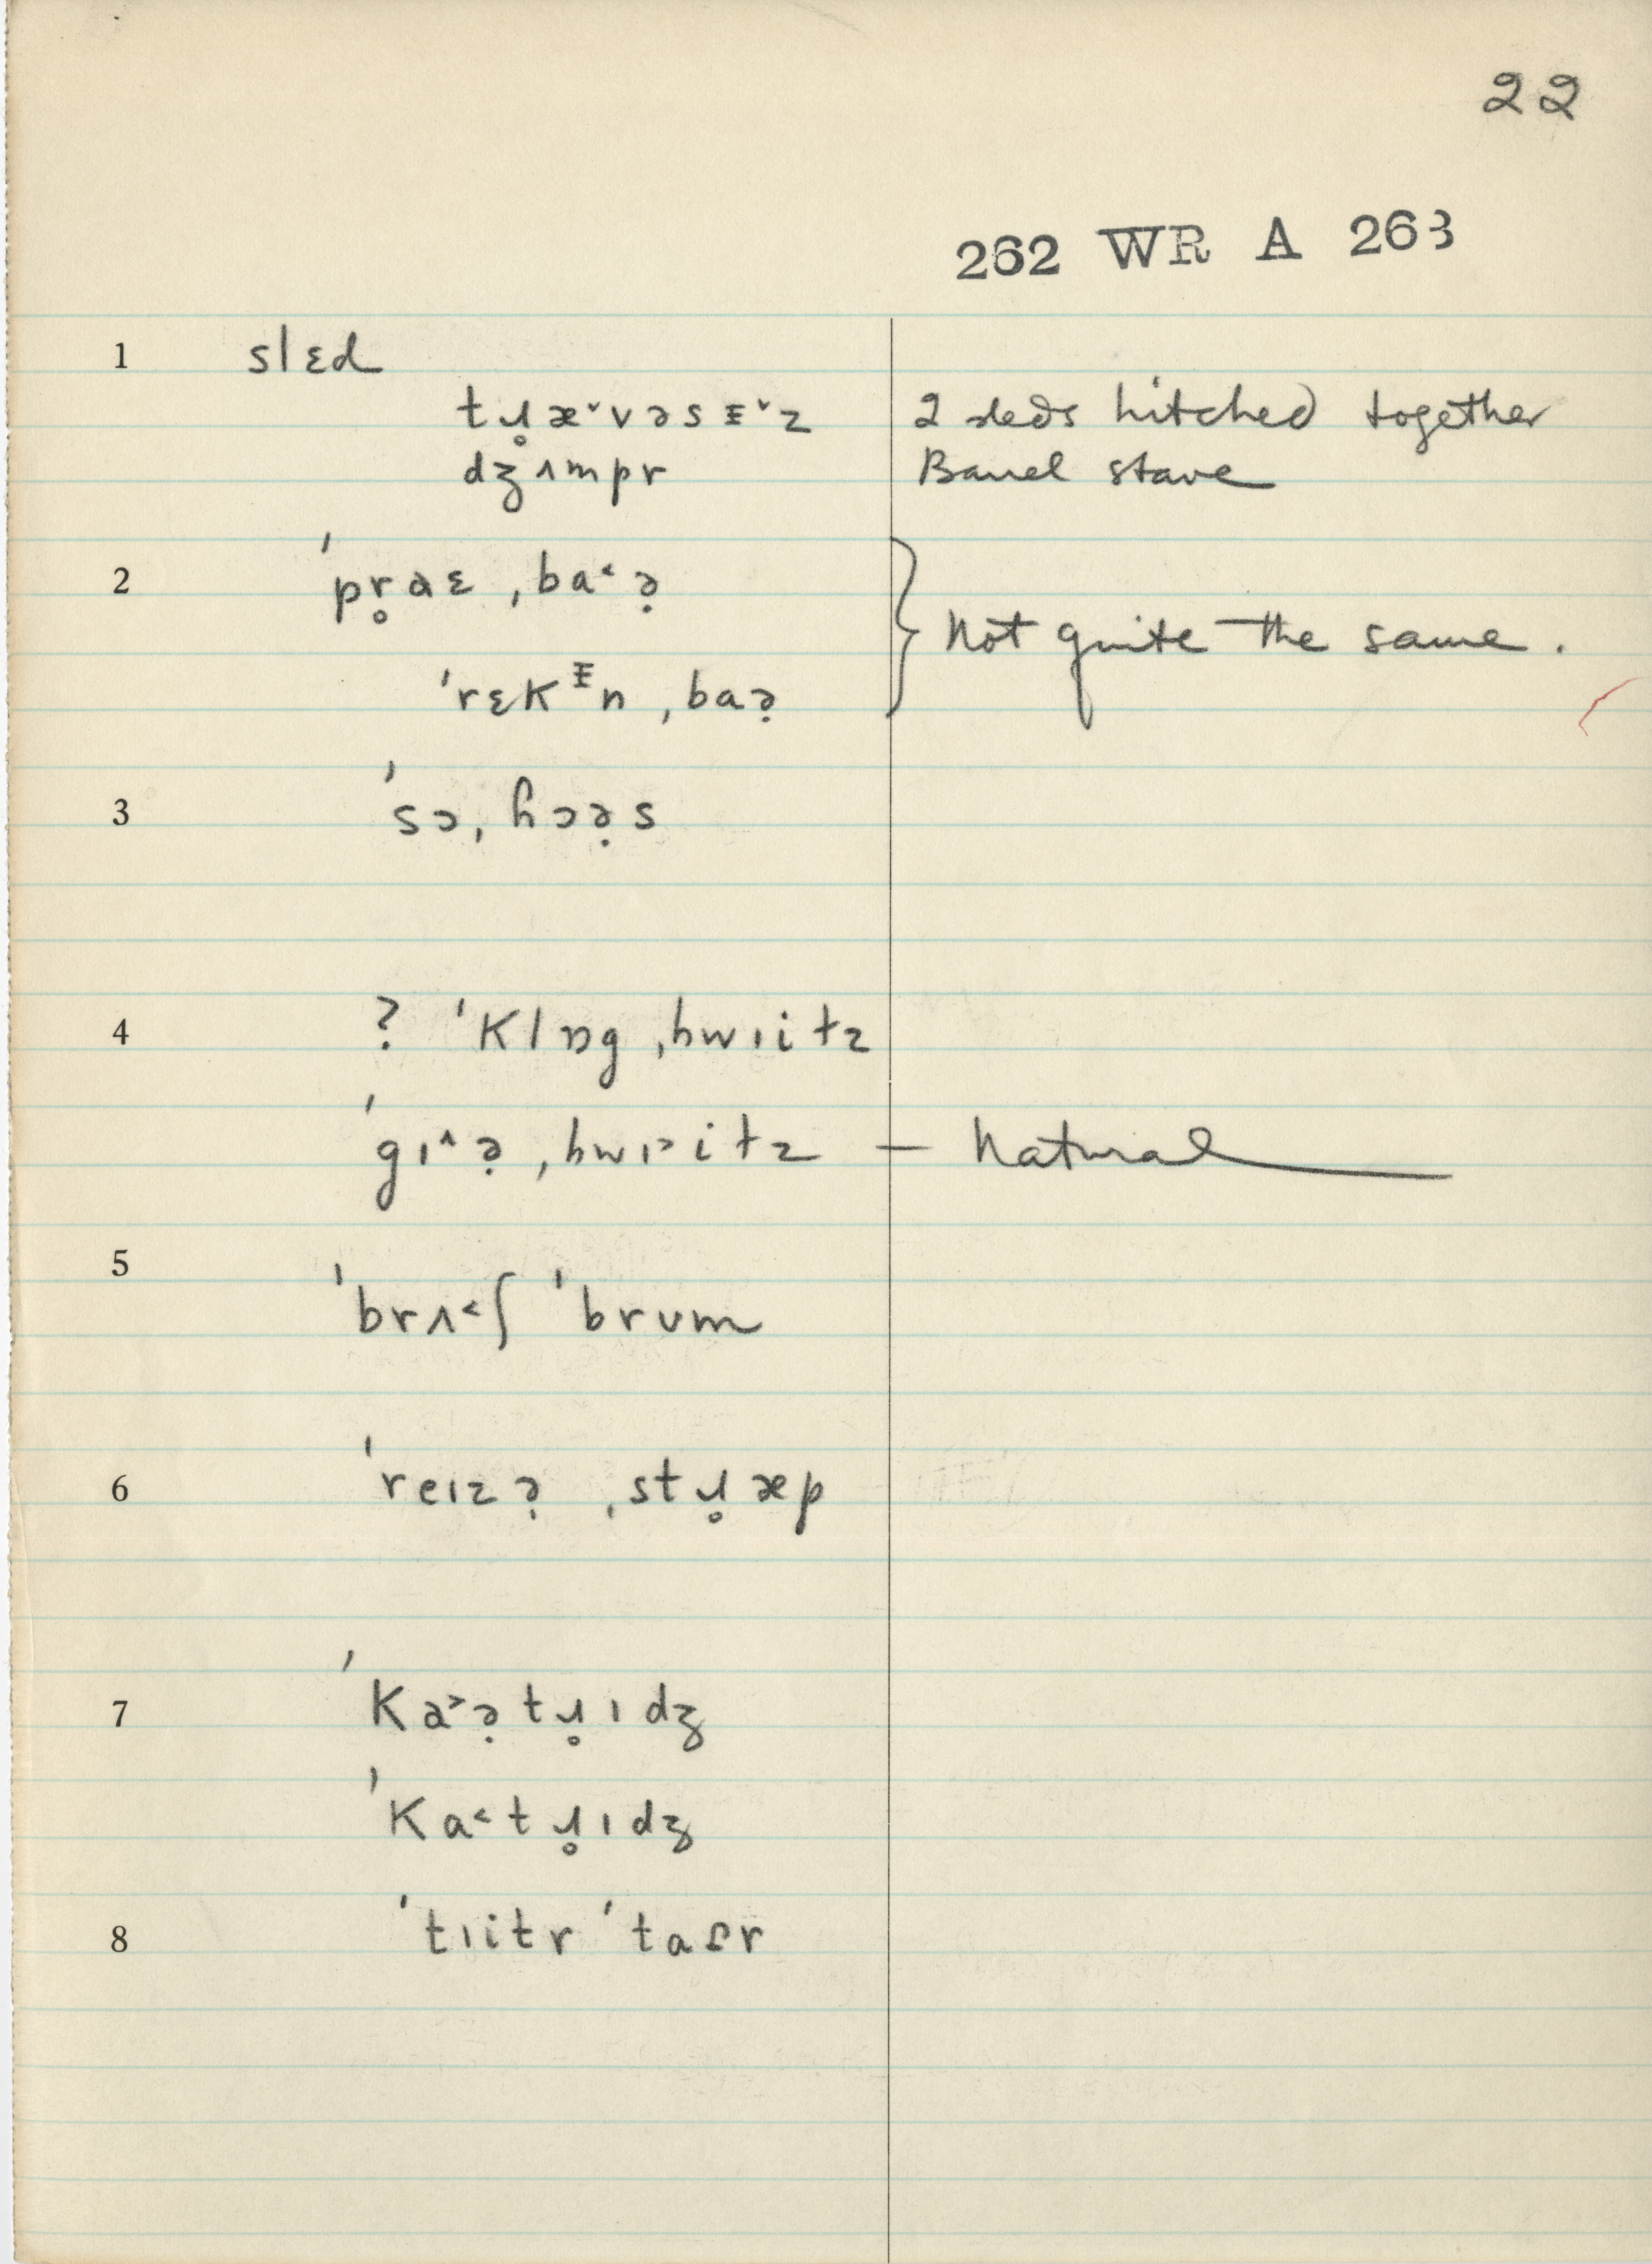 22
262 WR A 263
1 slɛd
tɹ̥æ˅vəsᵻ˅z 2 sleds hitched together
dʒʌmpr Barrel stave
2 ˈpr̥aɛ ˌba˂ə̣
Not quite the same.
ˈrɛkᵻn ˌbaə̣
3 ˈsɔˌhɔə̣s
4 ? ˈklɒg ˌhwɪitz
ˈgɪ˄ə̣ ˌhwɪ˃itz — Natural
5 ˈbrʌ˂ʃ ˈbrum
6 ˈreɪzə̣ ˌstɹ̥æp
7 ˈka˃ə̣tɹ̥ɪdʒ
ˈka˂tɹ̥ɪdʒ
8 ˈtɪitr ˈtaɾr